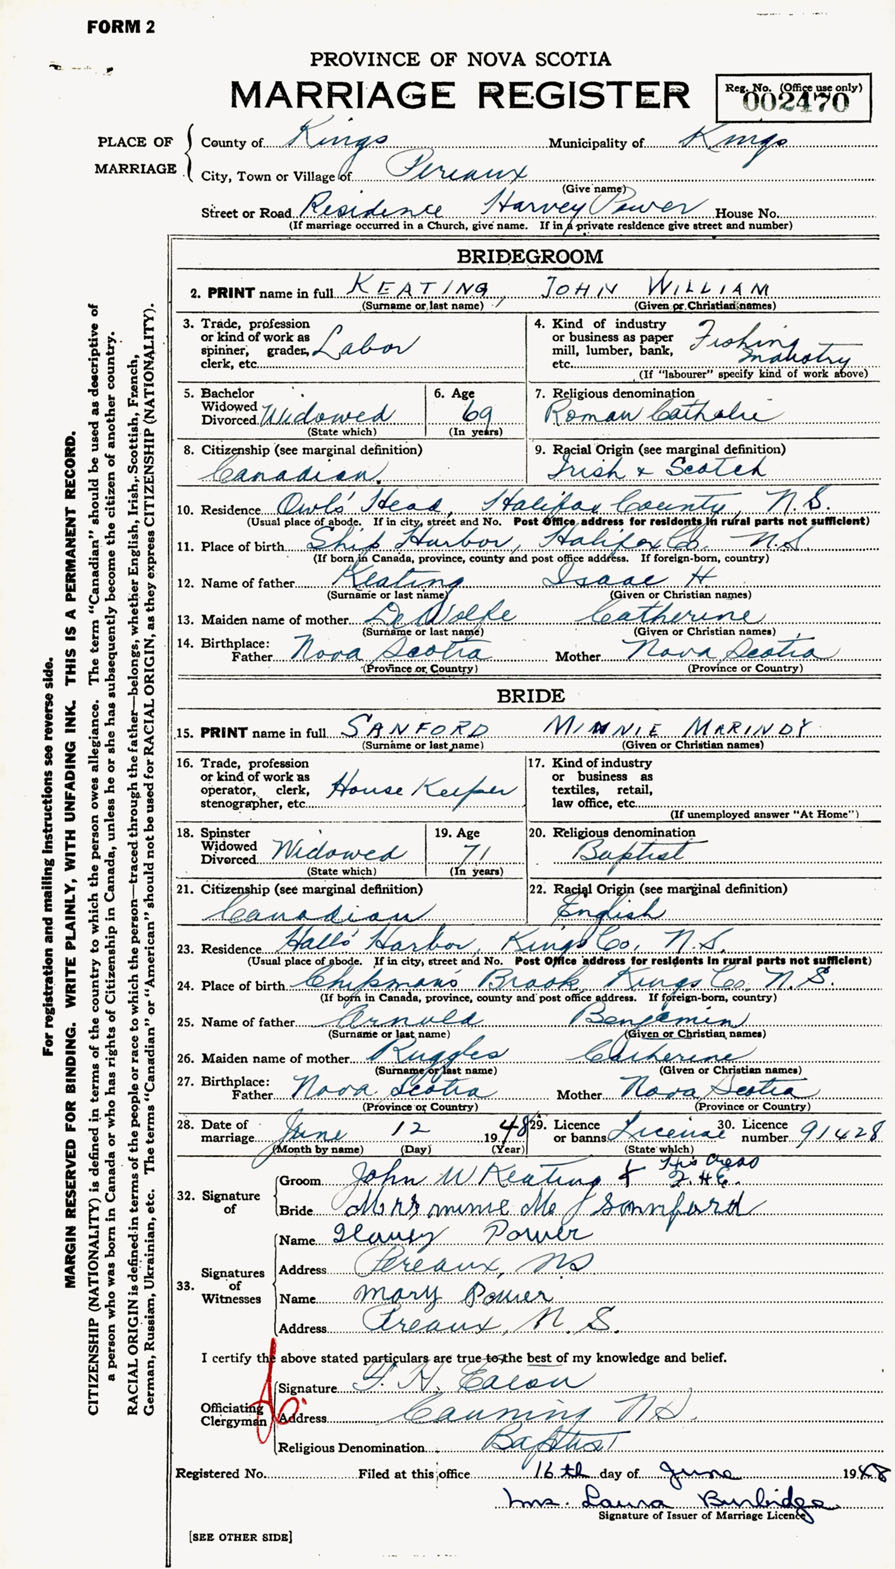 FORM 2
PROVINCE OF NOVA SCOTIA
MARRIAGE REGISTER
Reg. No. (Office use only)
002470
PLACE OF MARRIAGE
County of Kings Municipality of Kings
City, Town or Village of Pereaux
(Give name)
Street or Road Residence Harvey Power House No.
(If marriage occurred in a Church, give name. If in a private residence give street and number)
BRIDEGROOM
2. PRINT name in full KEATING, JOHN WILLIAM
(Surname or last name) (Given or Christian names)
3. Trade, profession or kind of work as spinner, grader, clerk, etc. Labor
4. Kind of industry or business as paper mill, lumber, bank, etc. Fishing Industry
(If "labourer" specify kind of work above)
5. Bachelor Widowed Divorced Widowed
(State which)
6. Age 69
(In years)
7. Religious denomination
Roman Catholic
8. Citizenship (see marginal definition)
Canadian.
9. Racial Origin (see marginal definition)
Irish & Scotch
10. Residence Owl's Head, Halifax County, N.S.
(Usual place of abode. If in city, street and No. Post Office address for residents in rural parts not sufficient)
11. Place of birth Ship Harbor, Halifax Co. N.S.
(If born in Canada, province, county and post office address. If foreign-born, country)
12. Name of father Keating Isaac H
(Surname or last name) (Given or Christian names)
13. Maiden name of mother De Wolfe Catherine
(Surname or last name) (Given or Christian names)
14. Birthplace:
Father Nova Scotia Mother Nova Scotia
(Province or Country) (Province or Country)
BRIDE
15. PRINT name in full SANFORD MINNIE MARINDY
(Surname or last name) (Given or Christian names)
16. Trade, profession or kind of work as operator, clerk, stenographer, etc. House Keeper
17. Kind of industry or business as textiles, retail, law office, etc.
(If unemployed answer "At Home")
18. Spinster Widowed Divorced Widowed
(State which)
19. Age 71
(In years)
20. Religious denomination
Baptist
21. Citizenship (see marginal definition)
Canadian
22. Racial Origin (see marginal definition)
English
23. Residence Hall's Harbor, Kings Co, N.S.
(Usual place of abode. If in city, street and No. Post Office address for residents in rural parts not sufficient)
24. Place of birth Chipman's Brook, Kings Co. N.S.
(If born in Canada, province, county and post office address. If foreign-born, country)
25. Name of father Arnold Benjamin
(Surname or last name) (Given or Christian names)
26. Maiden name of mother Ruggles Catherine
(Surname or last name) (Given or Christian names)
27. Birthplace:
Father Nova Scotia Mother Nova Scotia
(Province or Country) (Province or Country)
28. Date of marriage June 12 1948
(Month by name) (Day) (Year)
29. Licence or banns License
(State which)
30. Licence number 91428
32. Signature of
Groom John W Keating + His Cross
Bride Mrs minnie Me Sannford
33. Signatures of Witnesses
Name Harvey Power
Address Pereaux, NS
Name Mary Power
Address Pereaux, N.S.
I certify the above stated particulars are true to the best of my knowledge and belief.
Officiating Clergyman
Signature H. Eaton
Address Canning NS
Religious Denomination Baptist
Registered No. Filed at this office 16th day of June 1948
Mrs. Laura Burbidge
Signature of Issuer of Marriage Licence
[SEE OTHER SIDE]
For registration and mailing instructions see reverse side.
MARGIN RESERVED FOR BINDING. WRITE PLAINLY, WITH UNFADING INK. THIS IS A PERMANENT RECORD.
CITIZENSHIP (NATIONALITY) is defined in terms of the country to which the person owes allegiance. The term "Canadian" should be used as descriptive of
a person who was born in Canada or who has rights of Citizenship in Canada, unless he or she has subsequently become the citizen of another country.
RACIAL ORIGIN is defined in terms of the people or race to which the person—traced through the father—belongs, whether English, Irish, Scottish, French,
German, Russian, Ukrainian, etc. The terms "Canadian" or "American" should not be used for RACIAL ORIGIN, as they express CITIZENSHIP (NATIONALITY).